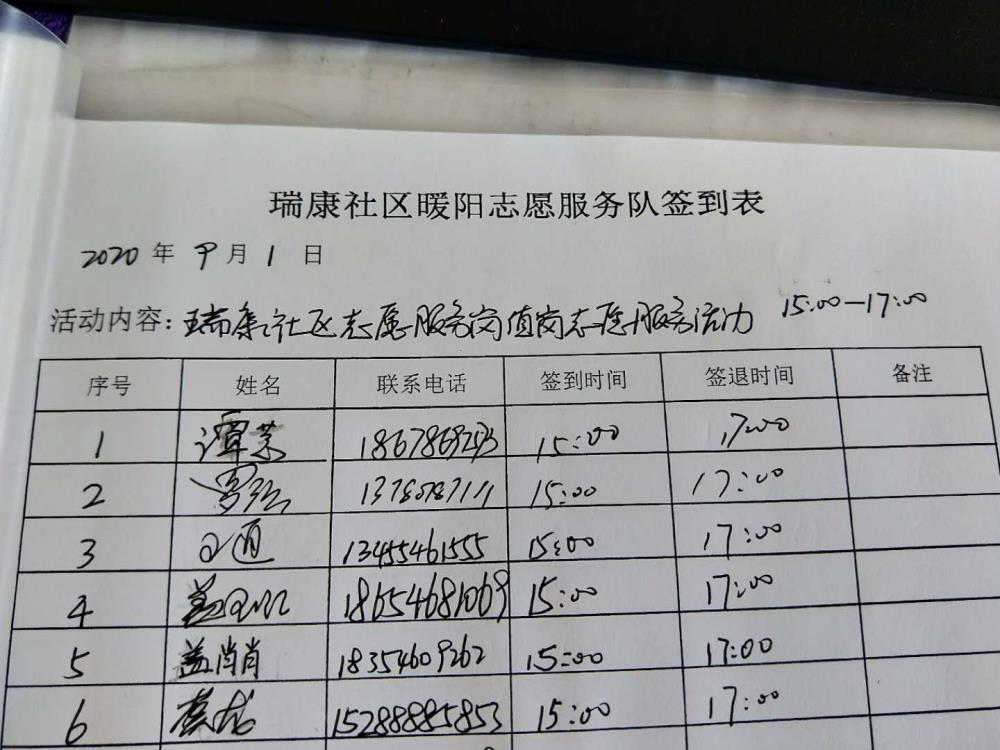 瑞康社区暖阳志愿服务队签到表
2020年 9月 1 日
活动内容：瑞康社区志愿服务岗值岗志愿服务活动 15:00-17:00
序号 姓名 联系电话 签到时间 签退时间 备注
1 谭 15:00 17:00
2 15:00 17:00
3 通 13455461555 15:00 17:00
4 盖 18654681069 15:00 17:00
5 盖肖肖 18354609262 15:00 17:00
6 15288885853 15:00 17:00